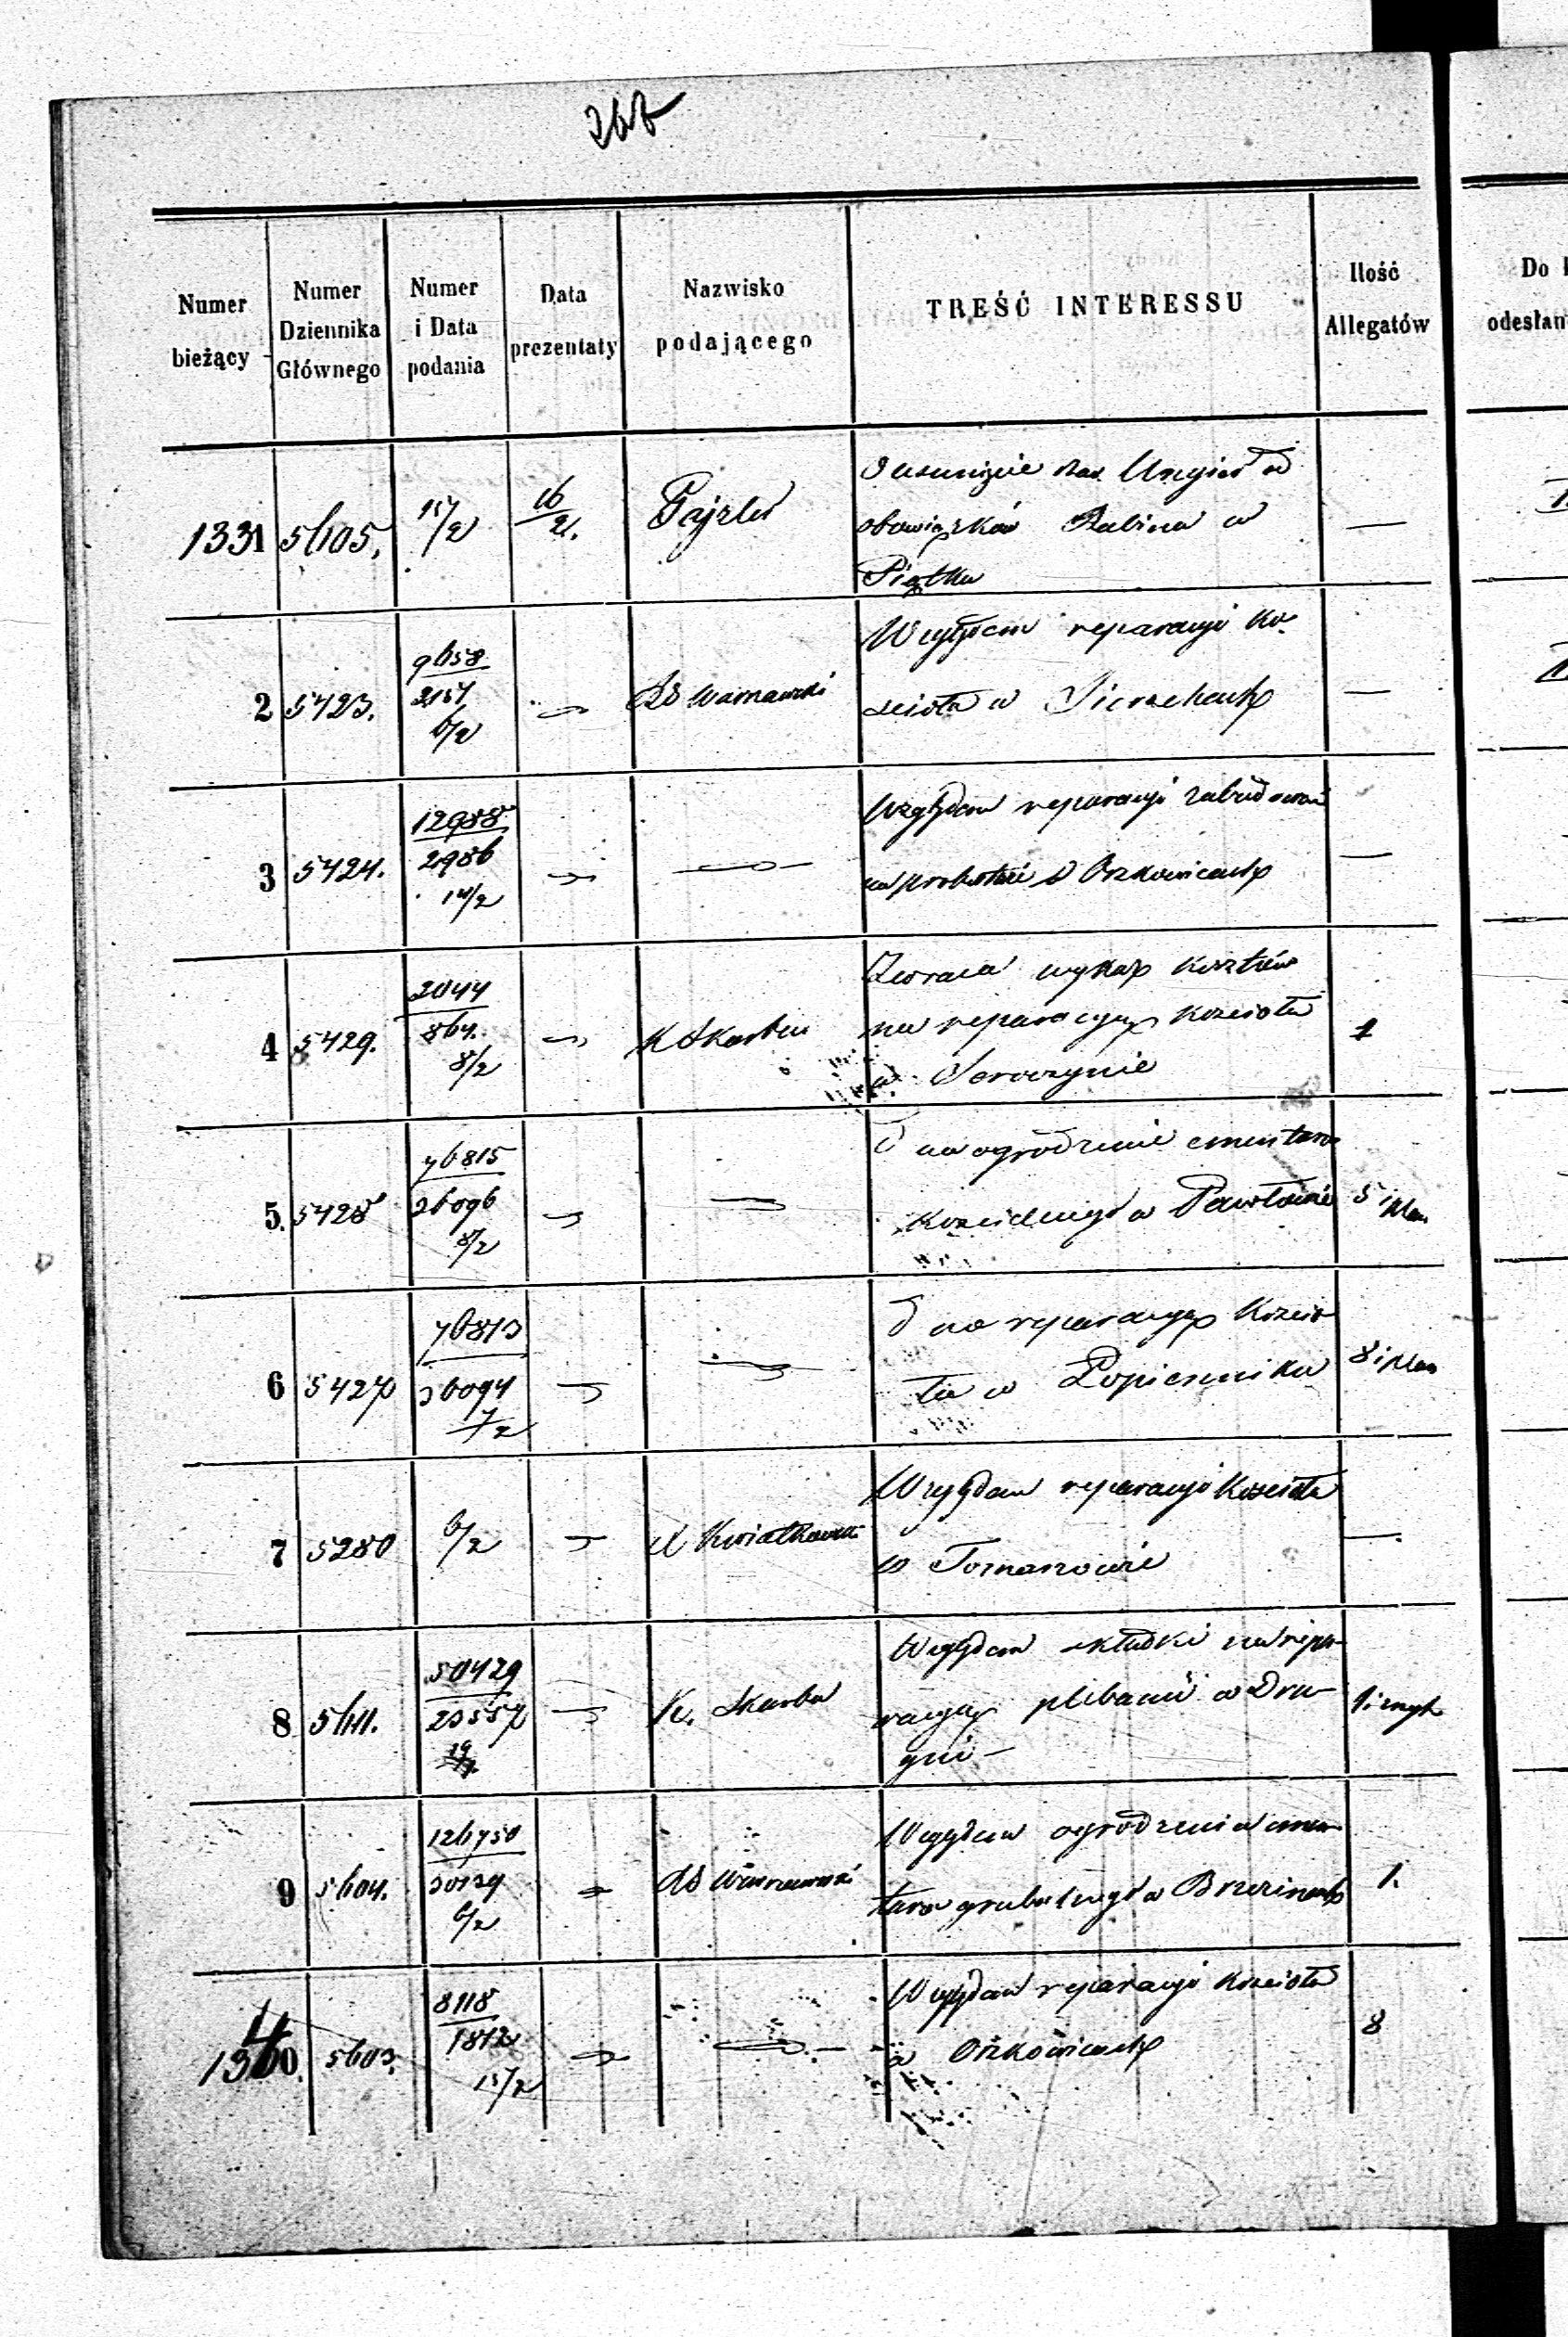 266
Numer bieżący
Numer Dziennika Głównego
Numer i Data podania
Data prezentaty
Nazwisko podającego
TREŚĆ INTERESSU
Ilość Allegatów
Do
odesłan
1331 5605. 15/2 16/2. Pajzler
o usunięcie od
obowiązków Rabina w —
Piątku
2 5423. 9658
2157
6/2
Względem reparacyi ko-
ścioła w Sierzchach —
3 5424. 12988
2986
14/2
Względem reparacyi zabudowań
na probostwie w Oszkowicach —
4 5429. 2044
864.
8/2
K Skarbu
Zwraca wykaz kosztów
na reparacyę kościoła 1
w Seroczynie
5. 5428 76815
26096
8/2
na ogrodzenie cmentarza
kościelnego w Pawłowie 5 i plan
6 5427 76813
26094
7/2
na reparacyę kościo
ła w 8 i plan
7 5280 6/2 X Kwiatkowski
Względem reparacyi kościoła
w Tomaszowie —
8 5611. 50429
23557
K. Skarbu
Względem składki na repa-
racyę plebanii w Dru-
gni —
9 5604. 126750
30129
6/2
Względem ogrodzenia cmen-
tarza grzebalnego w Brzezinach 1.
1340. 5603. 8118
1812
15/2
Względem reparacyi kościoła
w Oszkowicach 8